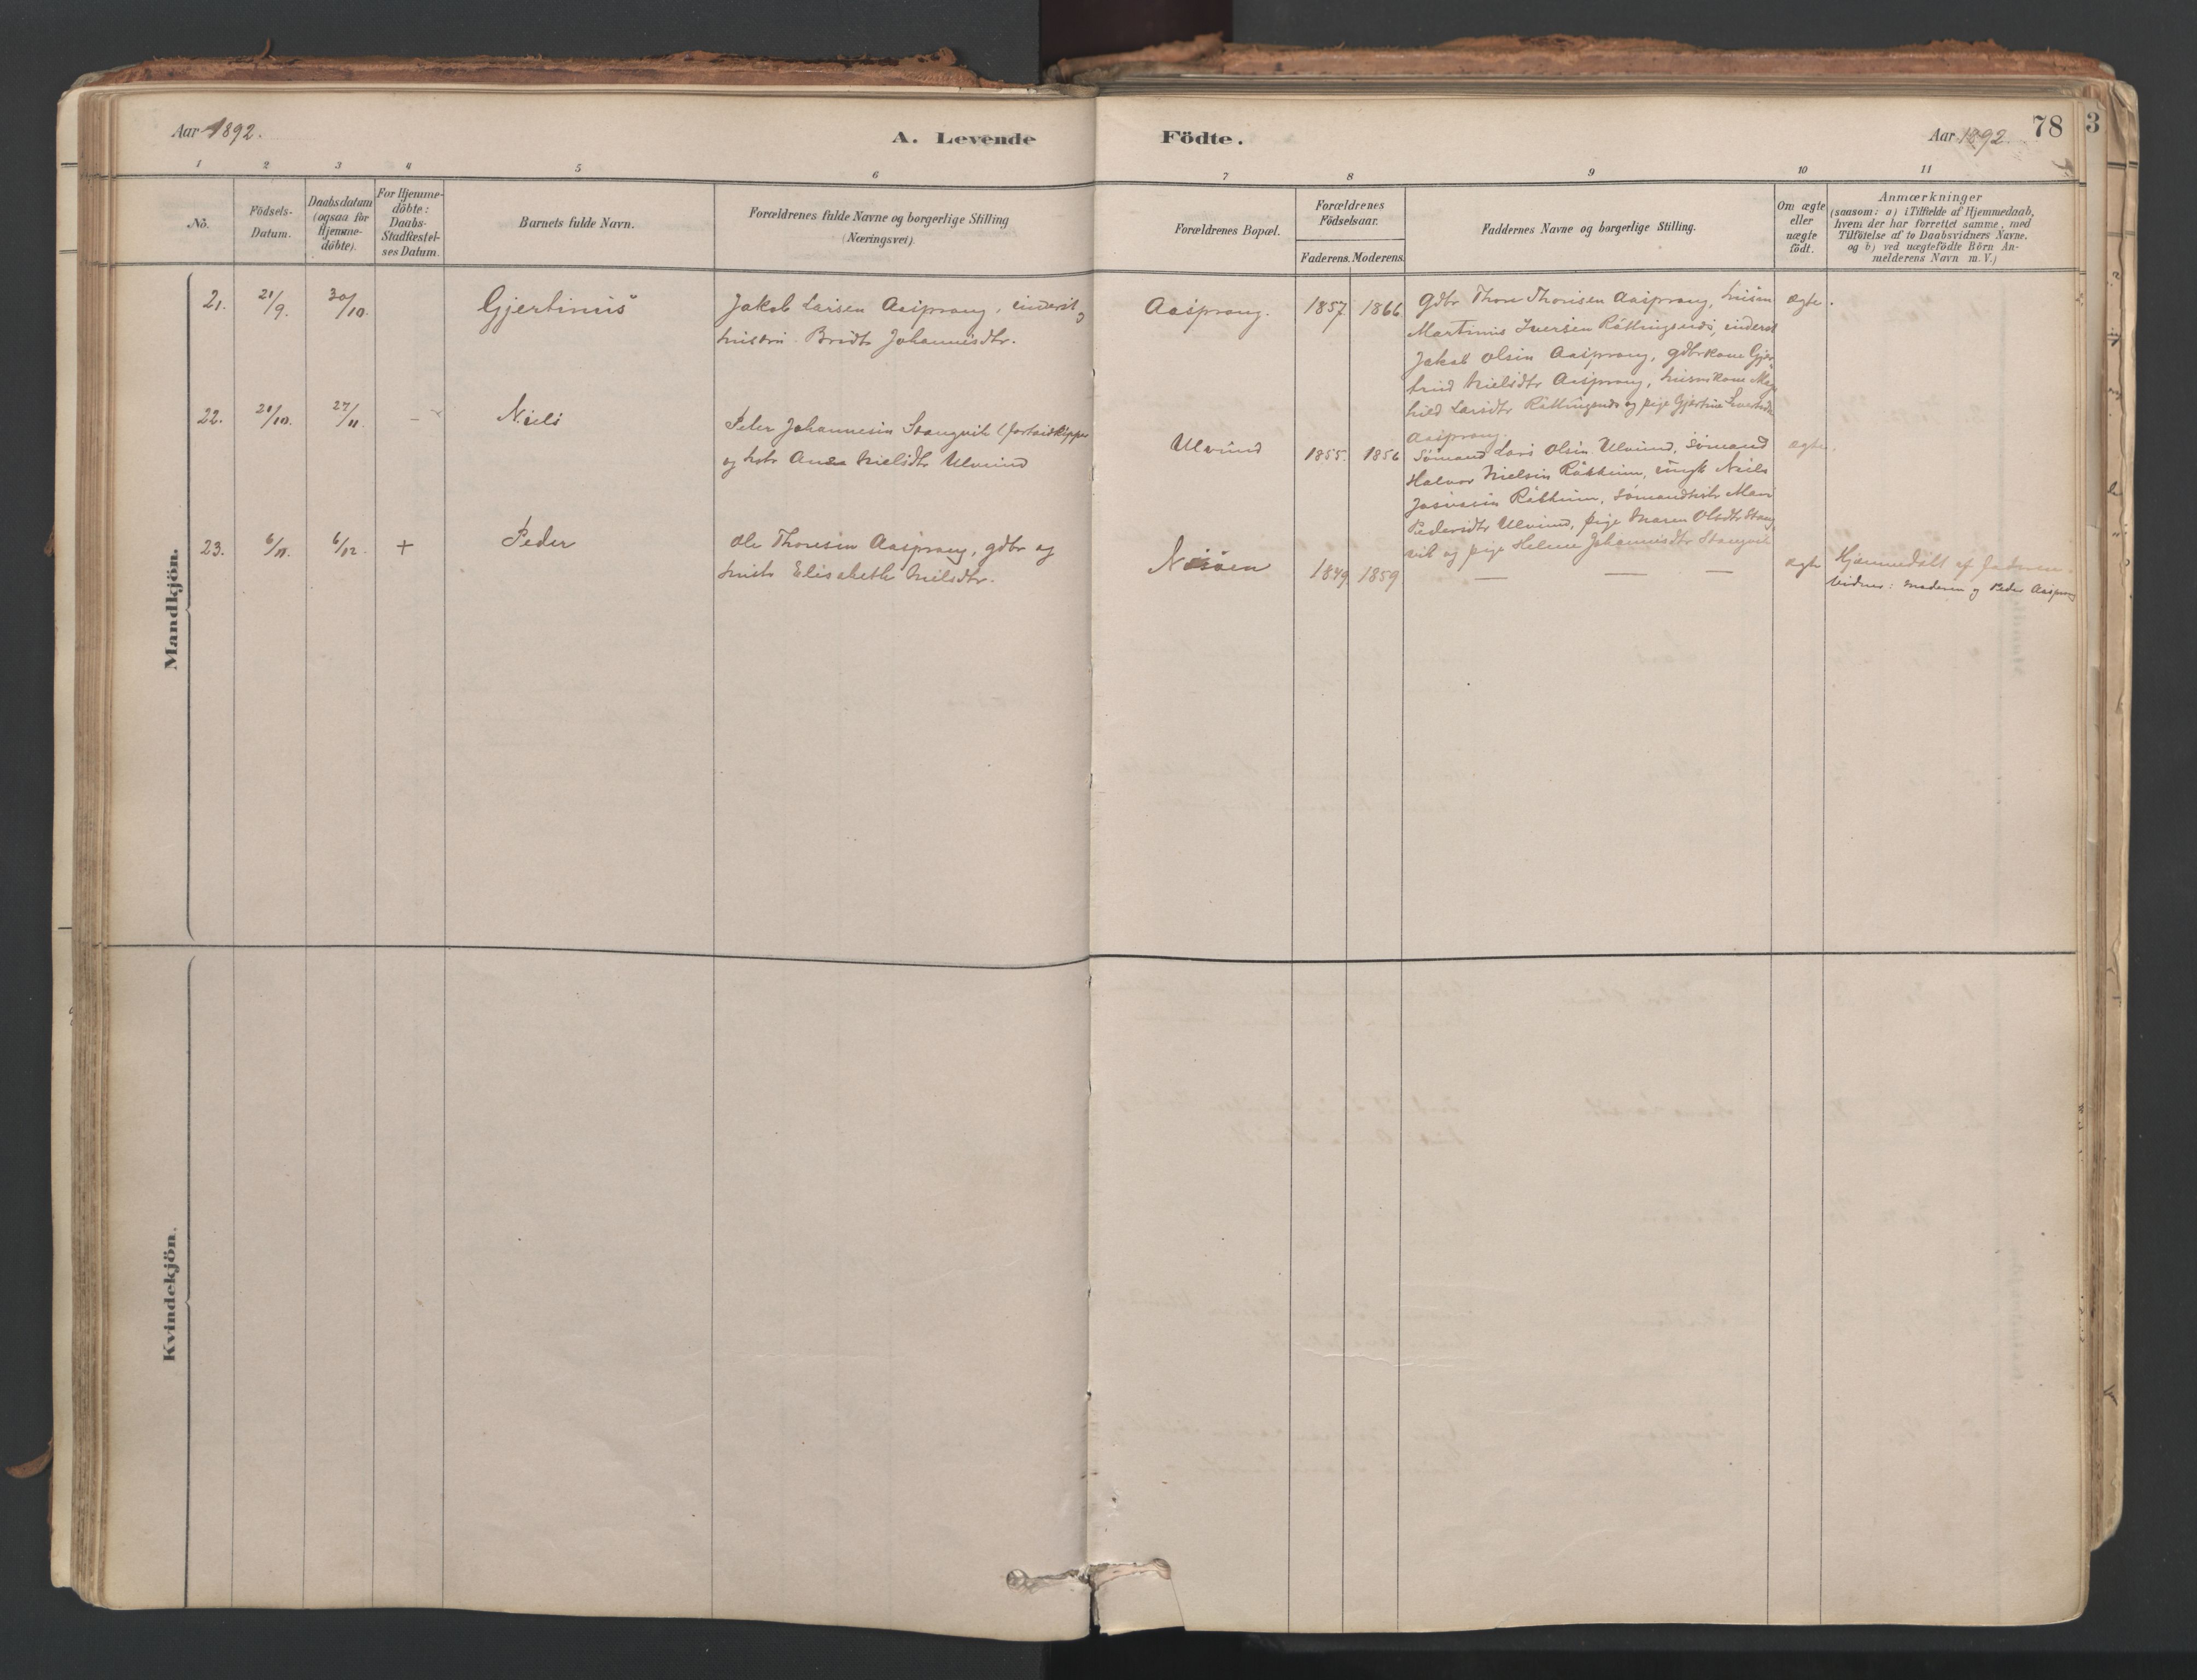 Aar 1892.
A. Levende Födte.
Aar 1892.
78
3
1 2 3 4 5 6 7 8 9 10 11
No.
Födsels-
Datum.
Daabsdatum
(ogsaa for
Hjemme-
döbte).
For Hjemme-
döbte:
Daabs-
Stadfæstel-
ses Datum.
Barnets fulde Navn.
Forældrenes fulde Navne og borgerlige Stilling
(Næringsvei)
Forældrenes Bopæl.
Forældrenes
Födselsaar.
Faderens. Moderens.
Faddernes Navne og borgerlige Stilling.
Om ægte
eller
uægte
födt.
Anmærkninger
(saasom: a) i Tilfælde af Hjemmedaab,
hvem der har forrettet samme, med
Tilföielse af to Daabsvidners Navne,
og b) ved uægtefödte Börn An-
melderens Navn m. V.)
Mandkjön.
21. 21/9. 30/10. Gjertinus
Jakob Larsen Aasprang, inderst
Bridt Johannesdtr.
Aasprang. 1857 1866
Gdbr Thore Thoresen Aasprang,
Martinus Iversen
Jakob Olsen Aasprang, gdbrkone Gjer-
trud Nielsdtr Aasprang,
hild Larsdtr og pige Gjertine
Aasprang
ægte.
22. 21/10. 27/11. - Niels
Peder Johannesen Stangvik
og Nielsdtr Ulvund
Ulvund 1855. 1856
Sømand Lars Olsen Ulvund, sømand
Halvor Nielsen ungk Niels
Mari
Pedersdtr Ulvund, pige Maren Olsdtr Stang
vik og pige Helene Johannesdtr Stangvik
ægte.
23. 6/11. 6/12. + Peder
Ole Thoresen Aasprang, gdbr og
Elisabeth Nielsdtr.
1849 1859
— — —
ægte
Hjemmedøbt af Faderen.
Vidner: Moderen og Peder Aasprang
Kvindekjön.